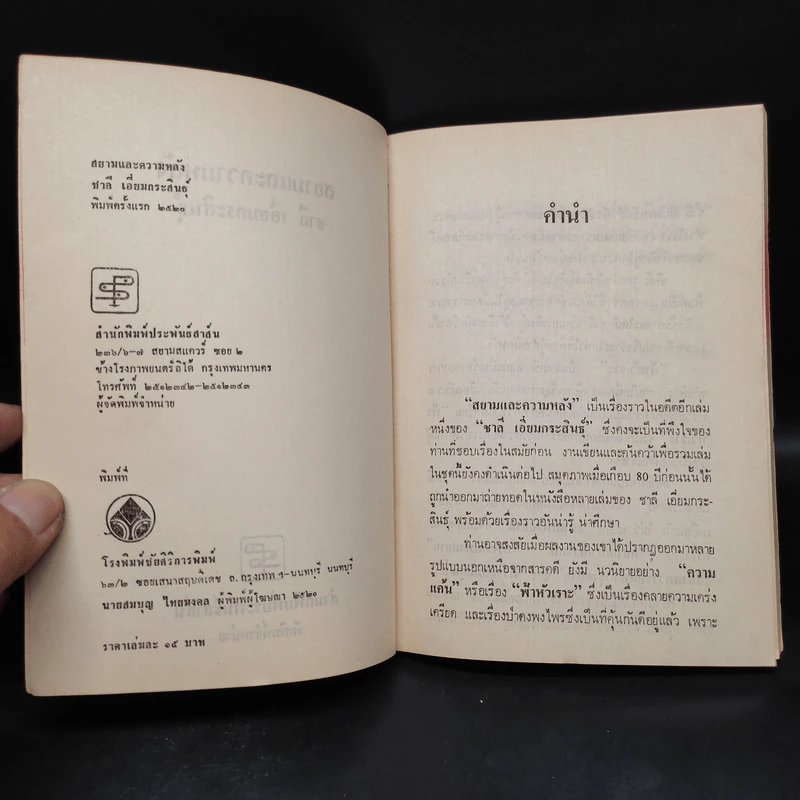 สยามและความหลัง
ชาลี เอี่ยมกระสินธุ์
พิมพ์ครั้งแรก ๒๕๒๐
สำนักพิมพ์ประพันธ์สาส์น
๒๓๖/๖-๗ สยามสแควร์ ซอย ๒
ข้างโรงภาพยนตร์ลิโด้ กรุงเทพมหานคร
โทรศัพท์ ๒๕๑๒๓๔๒-๒๕๑๒๓๔๓
ผู้จัดพิมพ์จำหน่าย
พิมพ์ที่
โรงพิมพ์ชัยศิริการพิมพ์
๖๓/๒ ซอยเสนาสฤษดิ์เดช ถ.กรุงเทพ ฯ-นนทบุรี นนทบุรี
นายสมบุญ ไทยมงคล ผู้พิมพ์ผู้โฆษณา ๒๕๒๐
ราคาเล่มละ ๑๕ บาท
คำนำ
“สยามและความหลัง” เป็นเรื่องราวในอดีตอีกเล่ม
หนึ่งของ “ชาลี เอี่ยมกระสินธุ์” ซึ่งคงจะเป็นที่พึงใจของ
ท่านที่ชอบเรื่องในสมัยก่อน งานเขียนและค้นคว้าเพื่อรวมเล่ม
ในชุดนี้ยังคงดำเนินต่อไป สมุดภาพเมื่อเกือบ 80 ปีก่อนนั้นได้
ถูกนำออกมาถ่ายทอดในหนังสือหลายเล่มของ ชาลี เอี่ยมกระ-
สินธุ์ พร้อมด้วยเรื่องราวอันน่ารู้ น่าศึกษา
ท่านอาจสงสัยเมื่อผลงานของเขาได้ปรากฏออกมาหลาย
รูปแบบนอกเหนือจากสารคดี ยังมี นวนิยายอย่าง “ความ
แค้น” หรือเรื่อง “ฟ้าหัวเราะ” ซึ่งเป็นเรื่องคลายความเคร่ง
เครียด และเรื่องป่าดงพงไพรซึ่งเป็นที่คุ้นกันดีอยู่แล้ว เพราะ